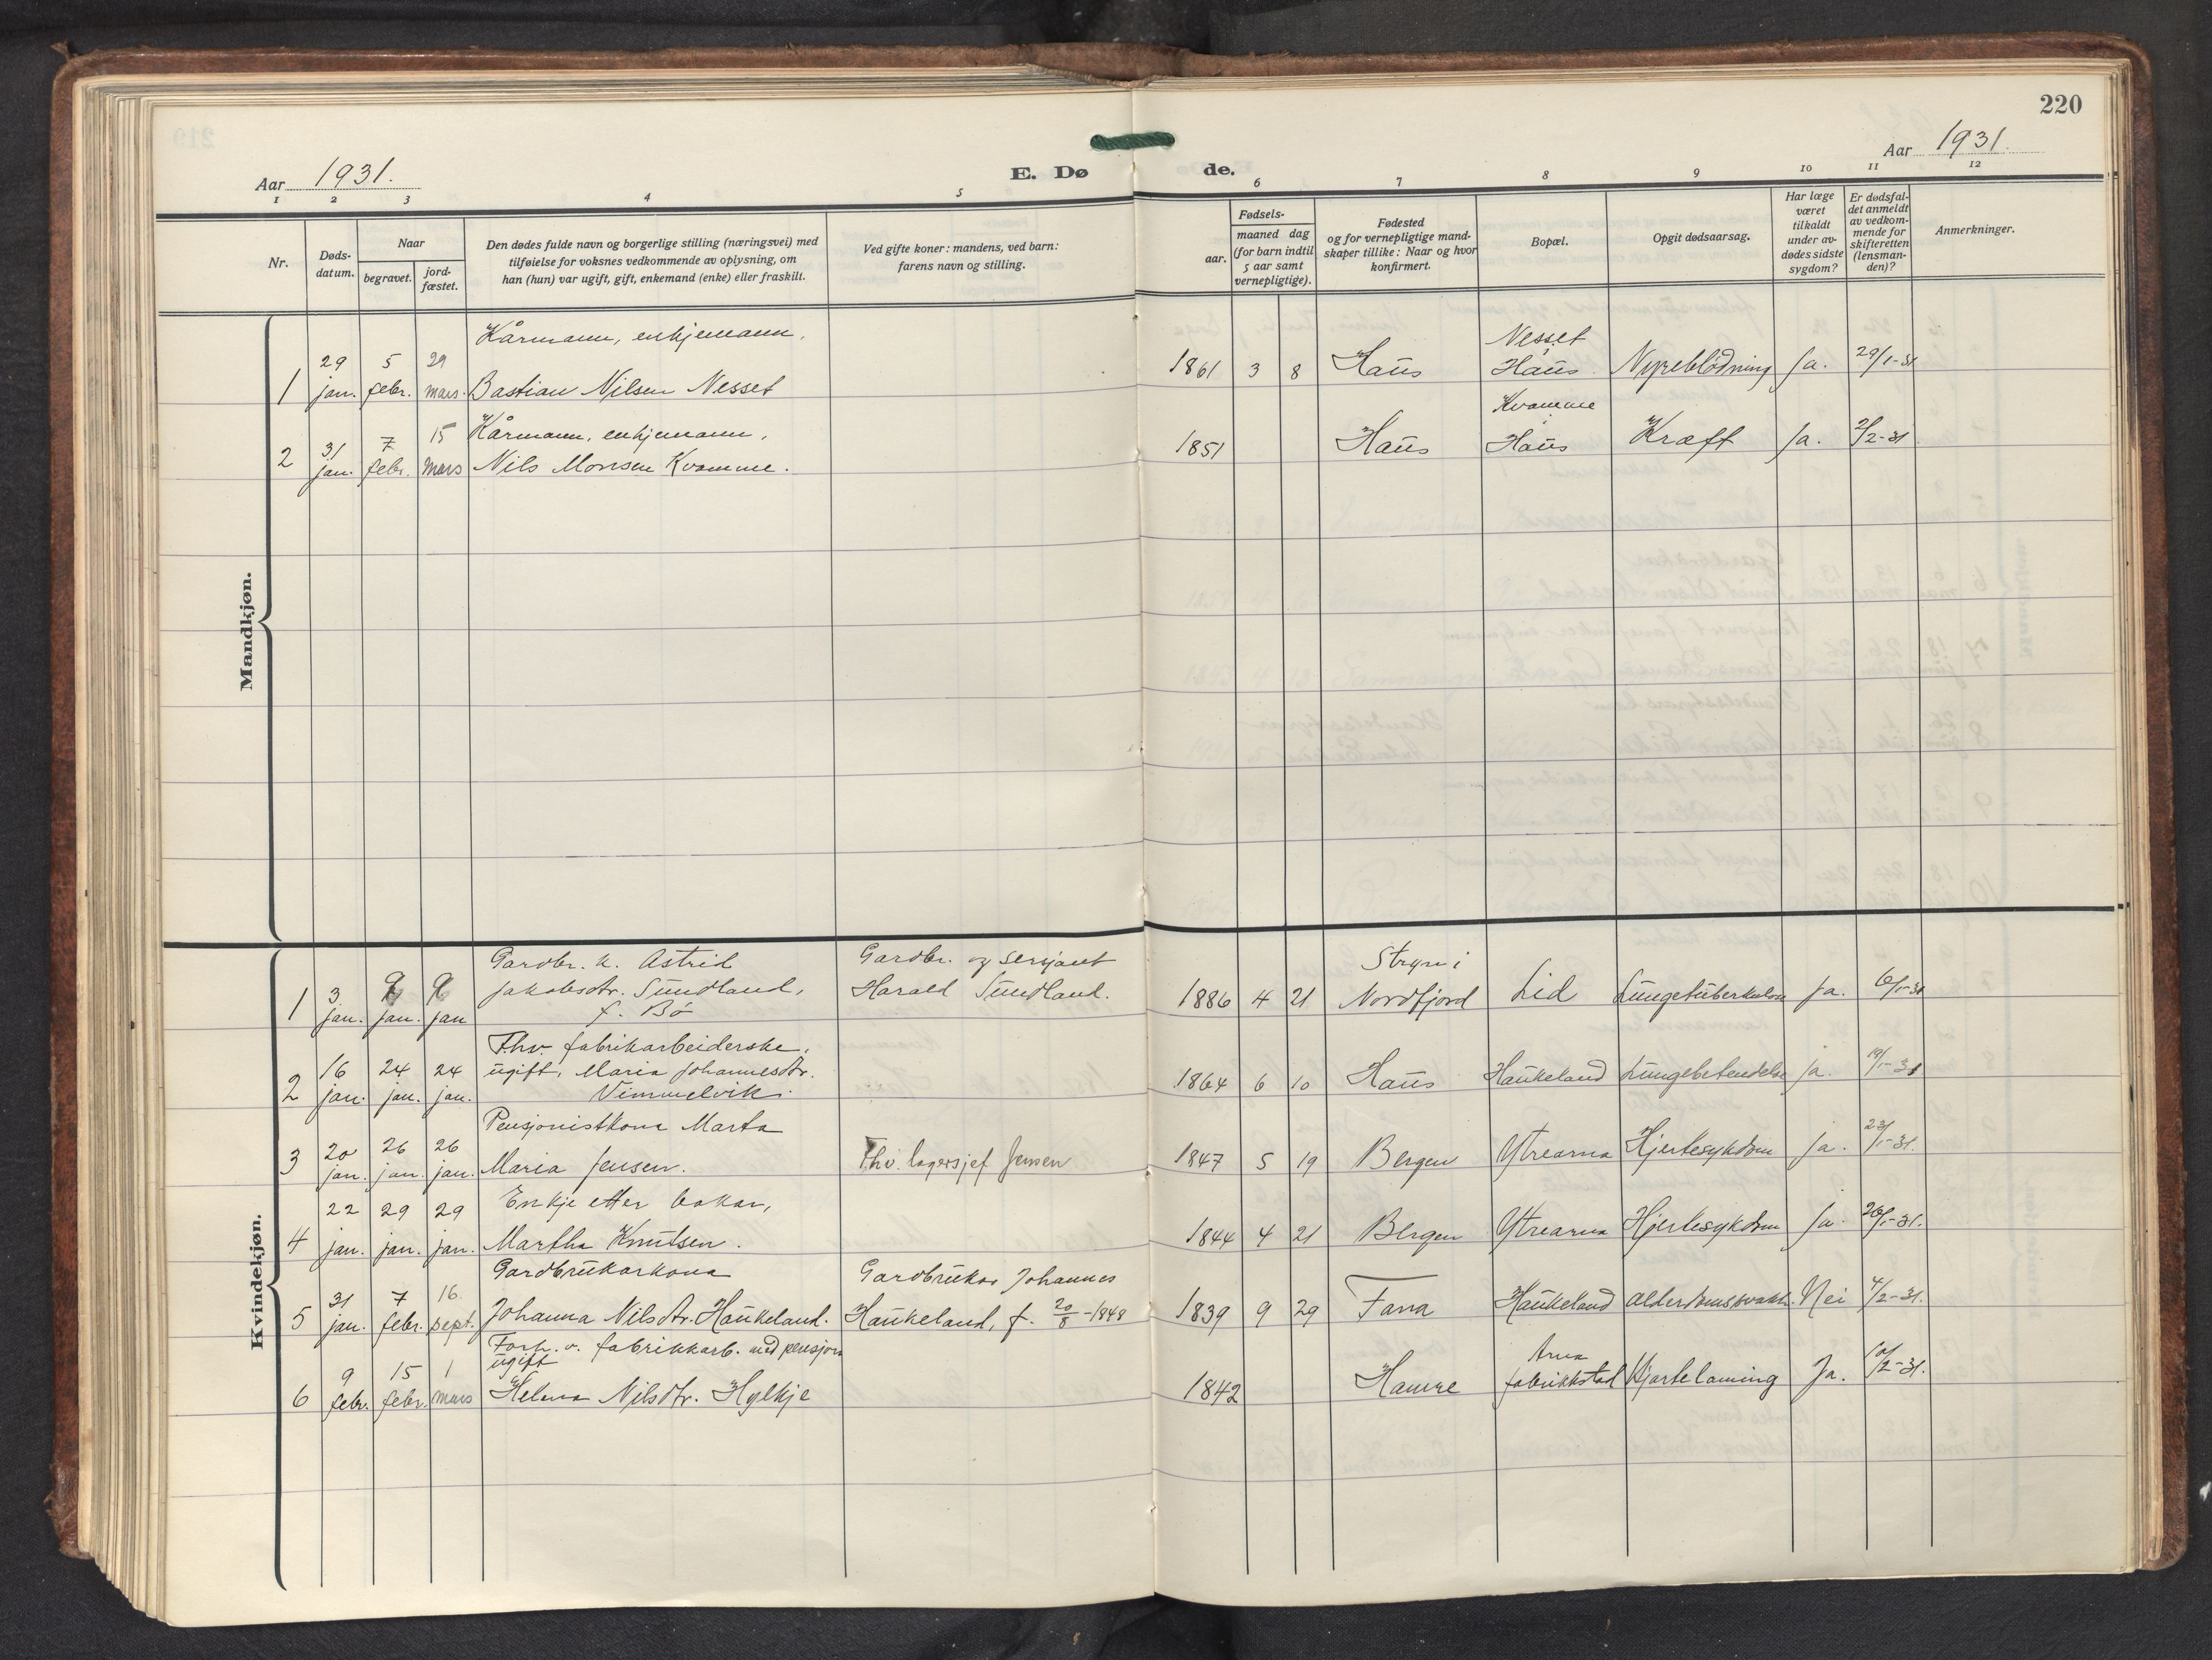 220
Aar 1931.
E. Døde.
Aar 1931.
1 2 3 4 5 6 7 8 9 10 11 12
Nr.
Døds-
datum.
Naar
begravet.
jord-
fæstet.
Den dødes fulde navn og borgerlige stilling (næringsvei) med
tilføielse for voksnes vedkommende av oplysning, om
han (hun) var ugift, gift, enkemand (enke) eller fraskilt.
Ved gifte koner: mandens, ved barn:
farens navn og stilling.
Fødsels-
aar.
maaned dag
(for barn indtil
5 aar samt
vernepligtige).
Fødested
og for vernepligtige mand-
skaper tillike: Naar og hvor
konfirmert.
Bopæl.
Opgit dødsaarsag.
Har læge
været
tilkaldt
under av-
dødes sidste
sygdom?
Er dødsfal-
det anmeldt
av vedkom-
mende for
skifteretten
(lensman-
den)?
Anmerkninger.
Mandkjøn.
Kårmann, enkjemann, Nesset
29 5 29
1 jan. febr. mars. Bastian Nilsen Nesset 1861 3 8 Haus Haus Nyreblødning Ja. 29/1-31
31 7 15 Kårmann, enkjemann, Kvamme
2 jan. febr. mars Nils Monsen Kvamme. 1851 Haus Haus Kræft Ja. 2/2-31
Kvindekjøn.
Gardbr. k. Astrid Gardbr. og sersjant Stryn i
1 3. jan. 9 jan. 9 jan Jakobsdtr. Sundland, Harald Sundland. 1886 4 21 Nordfjord Lid Lungetuberkulose Ja. 6/1-31
f. Bø
Fhv. fabrikarbeiderske,
16 24 24 ugift, Maria Johannesdtr.
2 jan. jan. jan. Vimmelvik. 1864 6 10 Haus Haukeland Lungebetendelse ja. 19/1-31
Pensjonistkona Marta
20 26 26
3 jan. jan. jan. Maria Jensen. Fhv. lagersjef Jensen 1847 5 19 Bergen Ytrearna Hjertesykdom ja. 23/1-31.
22 29 29 Enkje etter bakar,
4 jan. jan. jan. Martha Knutsen. 1844 4 21 Bergen Ytrearna Hjertesykdom ja. 26/1-31.
Gardbrukarkona Gardbrukar Johannes
31 7 16
5 jan. febr. sept. Johanna Nilsdtr. Haukeland. Haukeland, f. 20/8-1848 1839 9 29 Fana Haukeland Nei 4/2-31.
Forh. v. fabrikkarb. med pensjon
9 15 1 ugift Arna
6 febr. febr. mars Helena Nilsdtr. Hylkje 1842 Hamre fabrikkstad Hjartelaming Ja. 10/2-31.